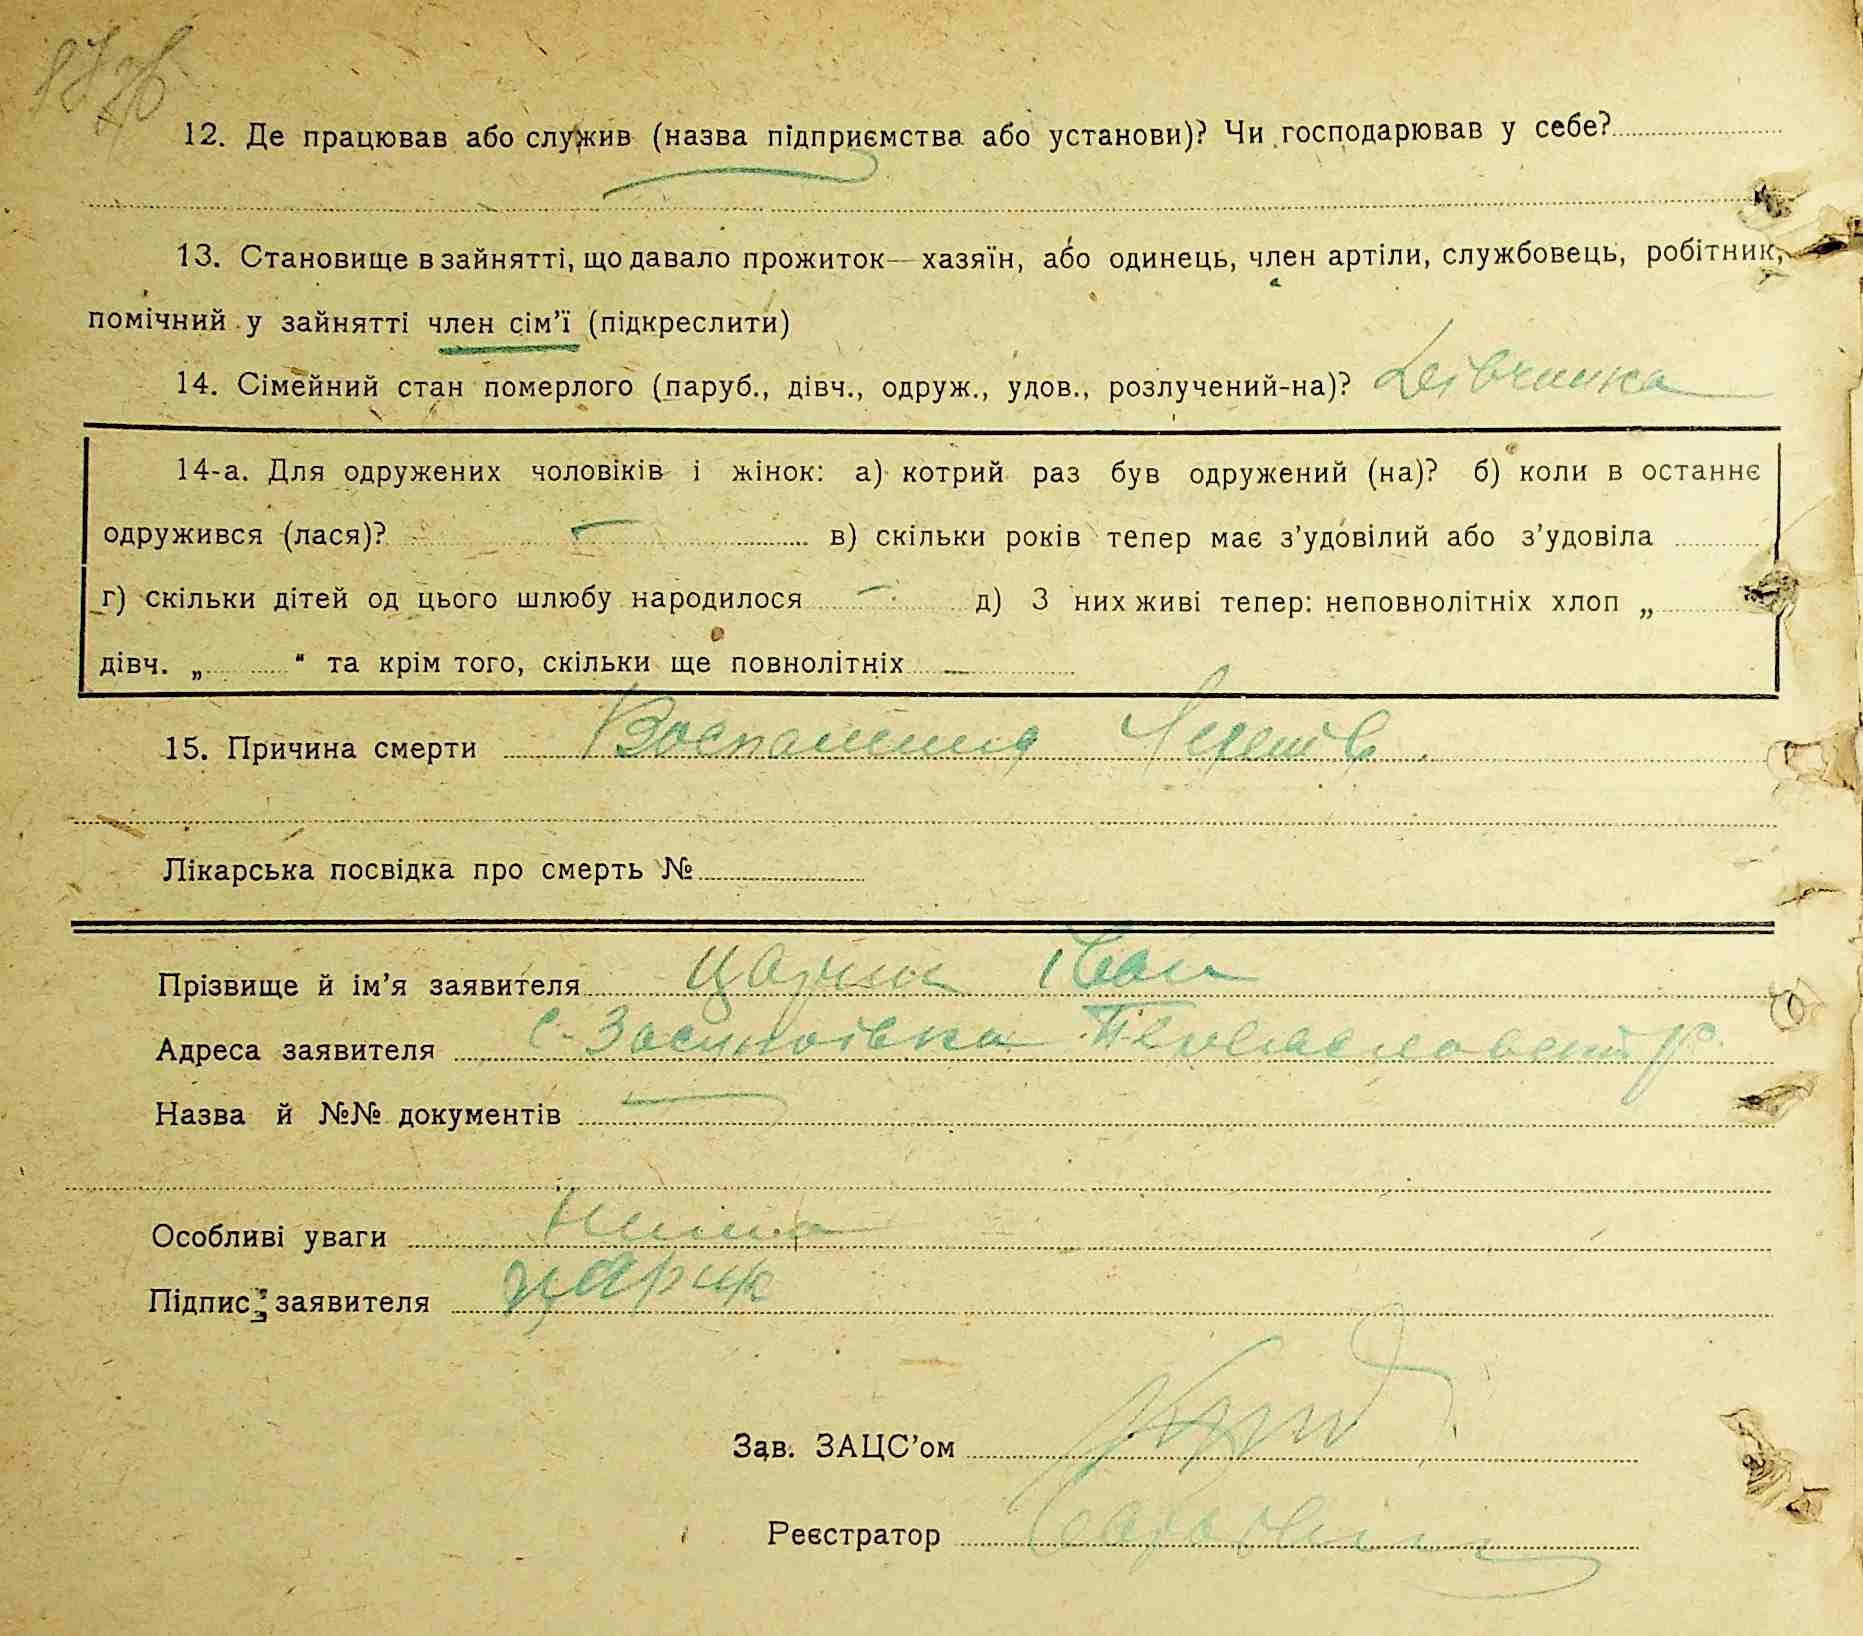 12. Де працював або служив (назва підприємства або установи)? Чи господарював у себе?
13. Становище в зайнятті, що давало прожиток — хазяїн, або одинець, член артіли, службовець, робітник,
помічний у зайнятті член сім’ї (підкреслити)
14. Сімейний стан померлого (паруб., дівч., одруж., удов., розлучений-на)? Дівчинка
14-а. Для одружених чоловіків і жінок: а) котрий раз був одружений (на)? б) коли в останнє
одружився (лася)? — в) скільки років тепер має з’удовілий або з’удовіла
г) скільки дітей од цього шлюбу народилося — д) З них живі тепер: неповнолітніх хлоп „
дівч. „ “ та крім того, скільки ще повнолітніх —
15. Причина смерти Воспаление
Лікарська посвідка про смерть №
Прізвище й ім’я заявителя Царик Іван
Адреса заявителя с. Засупоївка
Назва й №№ документів —
Особливі уваги Нима
Підпис заявителя Царик
Зав. ЗАЦС’ом
Реєстратор